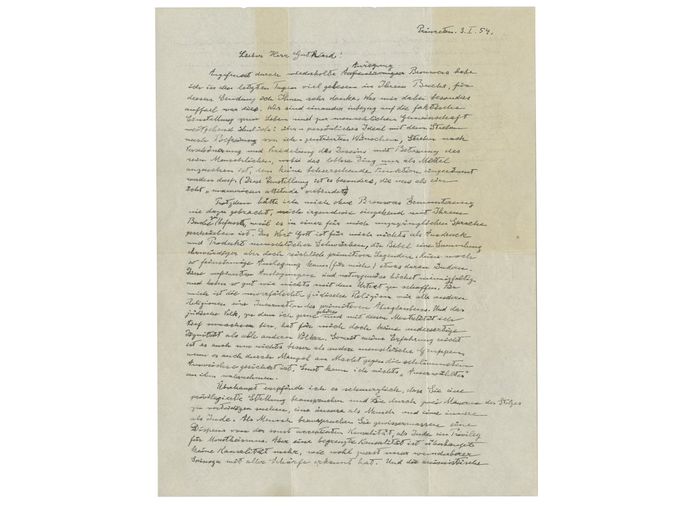 Princeton. 3. I. 54.
Lieber Herr Gutkind!
Anregung
Angefeuert durch wiederholte Brouwers habe
ich in den letzten Tagen viel gelesen in Ihrem Buche, für
dessen Sendung ich Ihnen sehr danke. Was mir dabei besonders
auffiel war dies. Wir sind einander inbezug auf die faktische
Einstellung zum Leben und zur menschlichen Gemeinschaft
weitgehend ähnlich: persönliches Ideal mit dem Streben
nach Befreiung von ich-zentrierten Wünschen, Streben nach
Verschönerung und Veredelung des Daseins mit Betonung des
rein Menschlichen, wobei das leblose Ding nur als Mittel
anzusehen ist, dem keine beherrschende Funktion eingeräumt
werden darf. (Diese Einstellung ist es besonders, die uns als ein
echt „unamerican attitude" verbindet)
Trotzdem hätte ich mich ohne Brouwers Ermunterung
nie dazu gebracht, mich irgendwie eingehend mit Ihrem
Buche zu befassen, weil es in einer für mich unzugänglichen Sprache
geschrieben ist. Das Wort Gott ist für mich nichts als Ausdruck
und Produkt menschlicher Schwächen, die Bibel eine Sammlung
ehrwürdiger aber doch reichlich primitiver Legenden. Keine noch
so feinsinnige Auslegung kann (für mich) etwas daran ändern.
Diese verfeinerten Auslegungen sind naturgemäss höchst mannigfaltig
und haben so gut wie nichts mit dem Urtext zu schaffen. Für
mich ist die unverfälschte jüdische Religion wie alle anderen
Religionen eine Incarnation des primitiven Aberglaubens. Und das
jüdische Volk, zu dem ich gerne gehöre und mit dessen Mentalität ich
tief verwachsen bin, hat für mich doch keine andersartige
Dignität als alle anderen Völker. Soweit meine Erfahrung reicht
ist es auch um nichts besser als andere menschliche Gruppen
wenn es auch durch Mangel an Macht gegen die schlimmsten
Auswüchse gesichert ist. Sonst kann ich nichts „Auserwähltes"
an ihm wahrnehmen.
Überhaupt empfinde ich es schmerzlich, dass Sie eine
privilegierte Stellung beanspruchen und sie durch zwei Mauern des Stolzes
zu verteidigen suchen, eine äussere als Mensch und eine innere
als Jude. Als Mensch beanspruchen Sie gewissermassen einen
Dispens von der sonst acceptierten Kausalität, als Jude ein Privileg
für Monotheismus. Aber eine begrenzte Kausalität ist überhaupt
keine Kausalität mehr, wie wohl zuerst unser wunderbarer
Spinoza mit aller Schärfe erkannt hat. Und die animistische